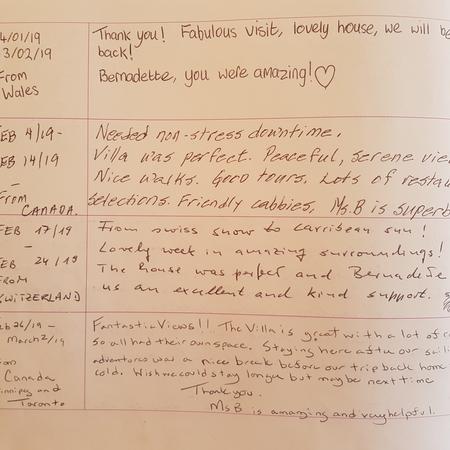 4/01/19
3/02/19
From
Wales
Thank you! Fabulous visit, lovely house, we will be
back!
Bernadette, you were amazing!
FEB 4/19-
FEB 14/19
-
From
CANADA.
Needed non-stress downtime.
Villa was perfect. Peaceful, serene vie
Nice walks. Good tours. Lots of restau
Selections. Friendly cabbies, Ms.B is superb
FEB 17/19
-
FEB 24/19
FROM
SWITZERLAND
From swiss snow to carribean sun!
Lovely week in amazing surroundings!
The house was perfect and Bernadette
us an excellent and kind support.
Feb 26/19 -
March 2/19
from
Canada
Winnipeg and
Toronto
Fantastic Views!! The Villa is great with a lot of
so all had their own space. Staying here after our sail
adventures was a nice break before our trip back home
cold. Wish we could stay longer but maybe next time
Thank you.
Ms B is amazing and very helpful.